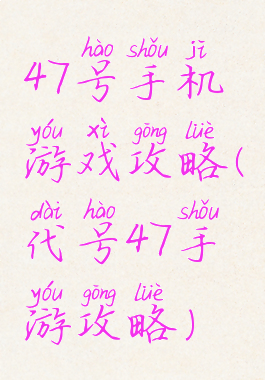 hào shǒu jī
47号手机
yóu xì gōng lüè
游戏攻略(
dài hào shǒu
代号47手
yóu gōng lüè
游攻略)